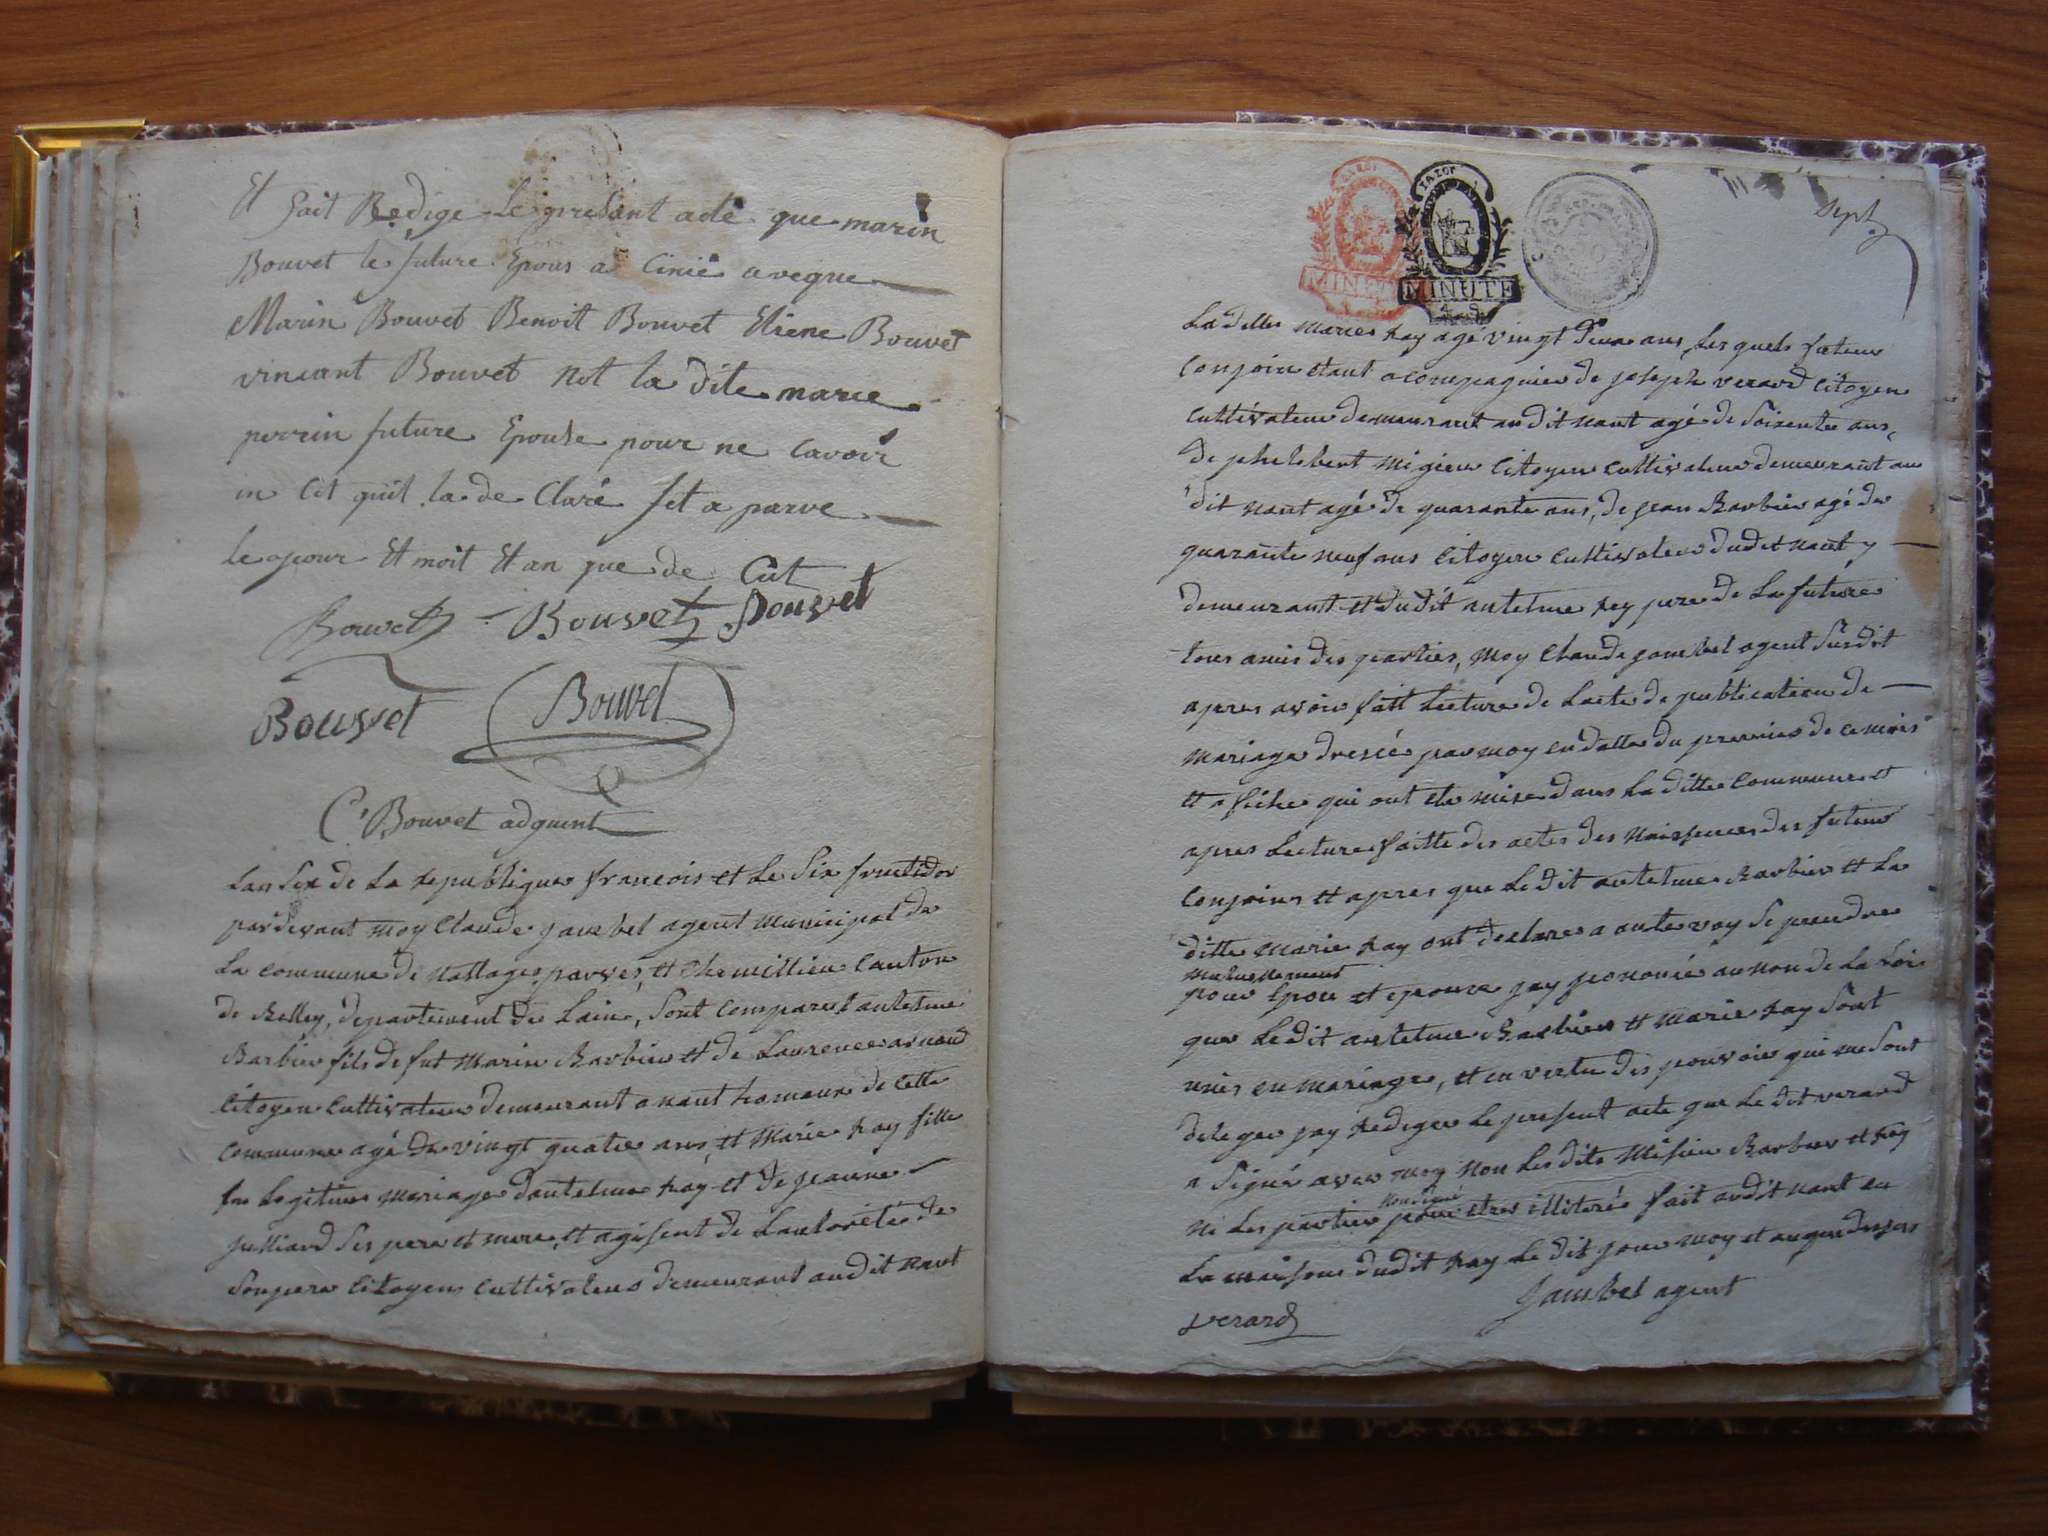 Et fait Redige le presant acte que marin
Bouvet le future Epous a Cinié avegue
Marin Bouvet Benoit Bouvet Etiene Bouvet
vincant Bouvet not la dite marie
perrin future Epouse pour ne Cavoir
in Cit quil la de Claré fet a parve
le jour Et moit Et an que de Cut
Bouvet Bouvet Bouvet
Bouvet Bouvet
Ct Bouvet adguint
Lan six de La republique francois et Le Six fructidor
pardevant moy Claude jambel agent municipal de
La commune de nattages parves, et Chemillieu Canton
de Belley, departement de Lain, Sont comparus antelme
Barbier fils de fut Marin Barbier et de Laurence arnoud
Citoyen Cultivateur demeurant a nant hameaux de cette
commune agé de vingt quatre ans, et Marie Ray fille
En Legitime mariage dantelme Ray et de jeanne
julliard Ses pere et mere, et agisent de Lautorité de
Son pere Citoyen cultivateur demeurant au dit nant
sept
MINUTE
MINUTE
La ditte Marie Ray agé vingt deux ans, Les quels futeur
Conjoin etant acompagnier de joseph verard Citoyen
Cultivateur demeurant au dit nant agé de Soixente ans,
de phelebert Migieu Citoyen cultivateur demeurant au
dit nant agé de quarante ans, de jean Barbier agé de
quarante neuf ans Citoyen cultivateur dudit nant y
demeurant et dudit antelme Rey pere de La future
tous amis des parties, Moy Claude jambel agent Susdit
apres avoir fait Lecture de Lacte de publication de
Mariage dressée par moy en datte du premier de ce mois
et afiche qui ont ete mise dans La ditte commune et
apres Lecture faitte des actes des naissences des futeur
Conjoins et apres que Le dit antelme Barbier et La
ditte Marie Ray ont declare a aute voy Se prendre
Mutuellement
pour Epou et epouse jay prononcé au non de La Loi
que Le dit antelme Barbier et Marie Ray Sont
unies en Mariage, et en vertu des pouvoir qui me Sont
deleguer jay Rediger Le present acte que Le dit verard
a Signé avec moy non Les dits Migieu Barbier et Rey
ni Les parties pour etres illiteré fait au dit nant en
non signé
La maison dudit Ray Le dit jour moy et an que dessus
Jambel agent
verard